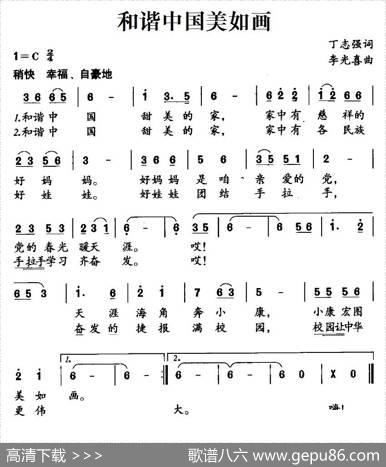 和谐中国美如画
1=C 2/4
丁志强词
稍快 幸福、自豪地
李光喜曲
3 6 6 5 | 6 - | i 3. 5 | 6 - | 6 2 2 | i 2 i 6 |
1.和谐中 国 甜 美的 家, 家中有 慈祥的
2.和谐中 国 甜 美的 家, 家中有 各民族
2 3 5 6 | 3 - | 5 6 5 6 | 1 6 | 3 5 5 1 | 2 - |
好 妈 妈。 好妈妈 是 咱 亲 爱的 党,
好 娃 娃。 好娃娃 团 结 手 拉 手,
党的 春光 暖天 涯。 哎!
手拉手学习 齐奋 发。 哎!
6 5 3 | 1. 6 | 2 1 | 7 6 3 | 5 - | 5 5 5 6 |
天 涯 海角 奔 小 康, 小康 宏图
奋发的 捷报 满校 园, 校园让中华
1. 2.
2 i | 6 - | 6 - | 6 - | 6 - | 6 0 | X 0 |
美 如 画。
更 伟 大。 嗨!
高清下载 >>> 歌谱八六 www.gepu86.com